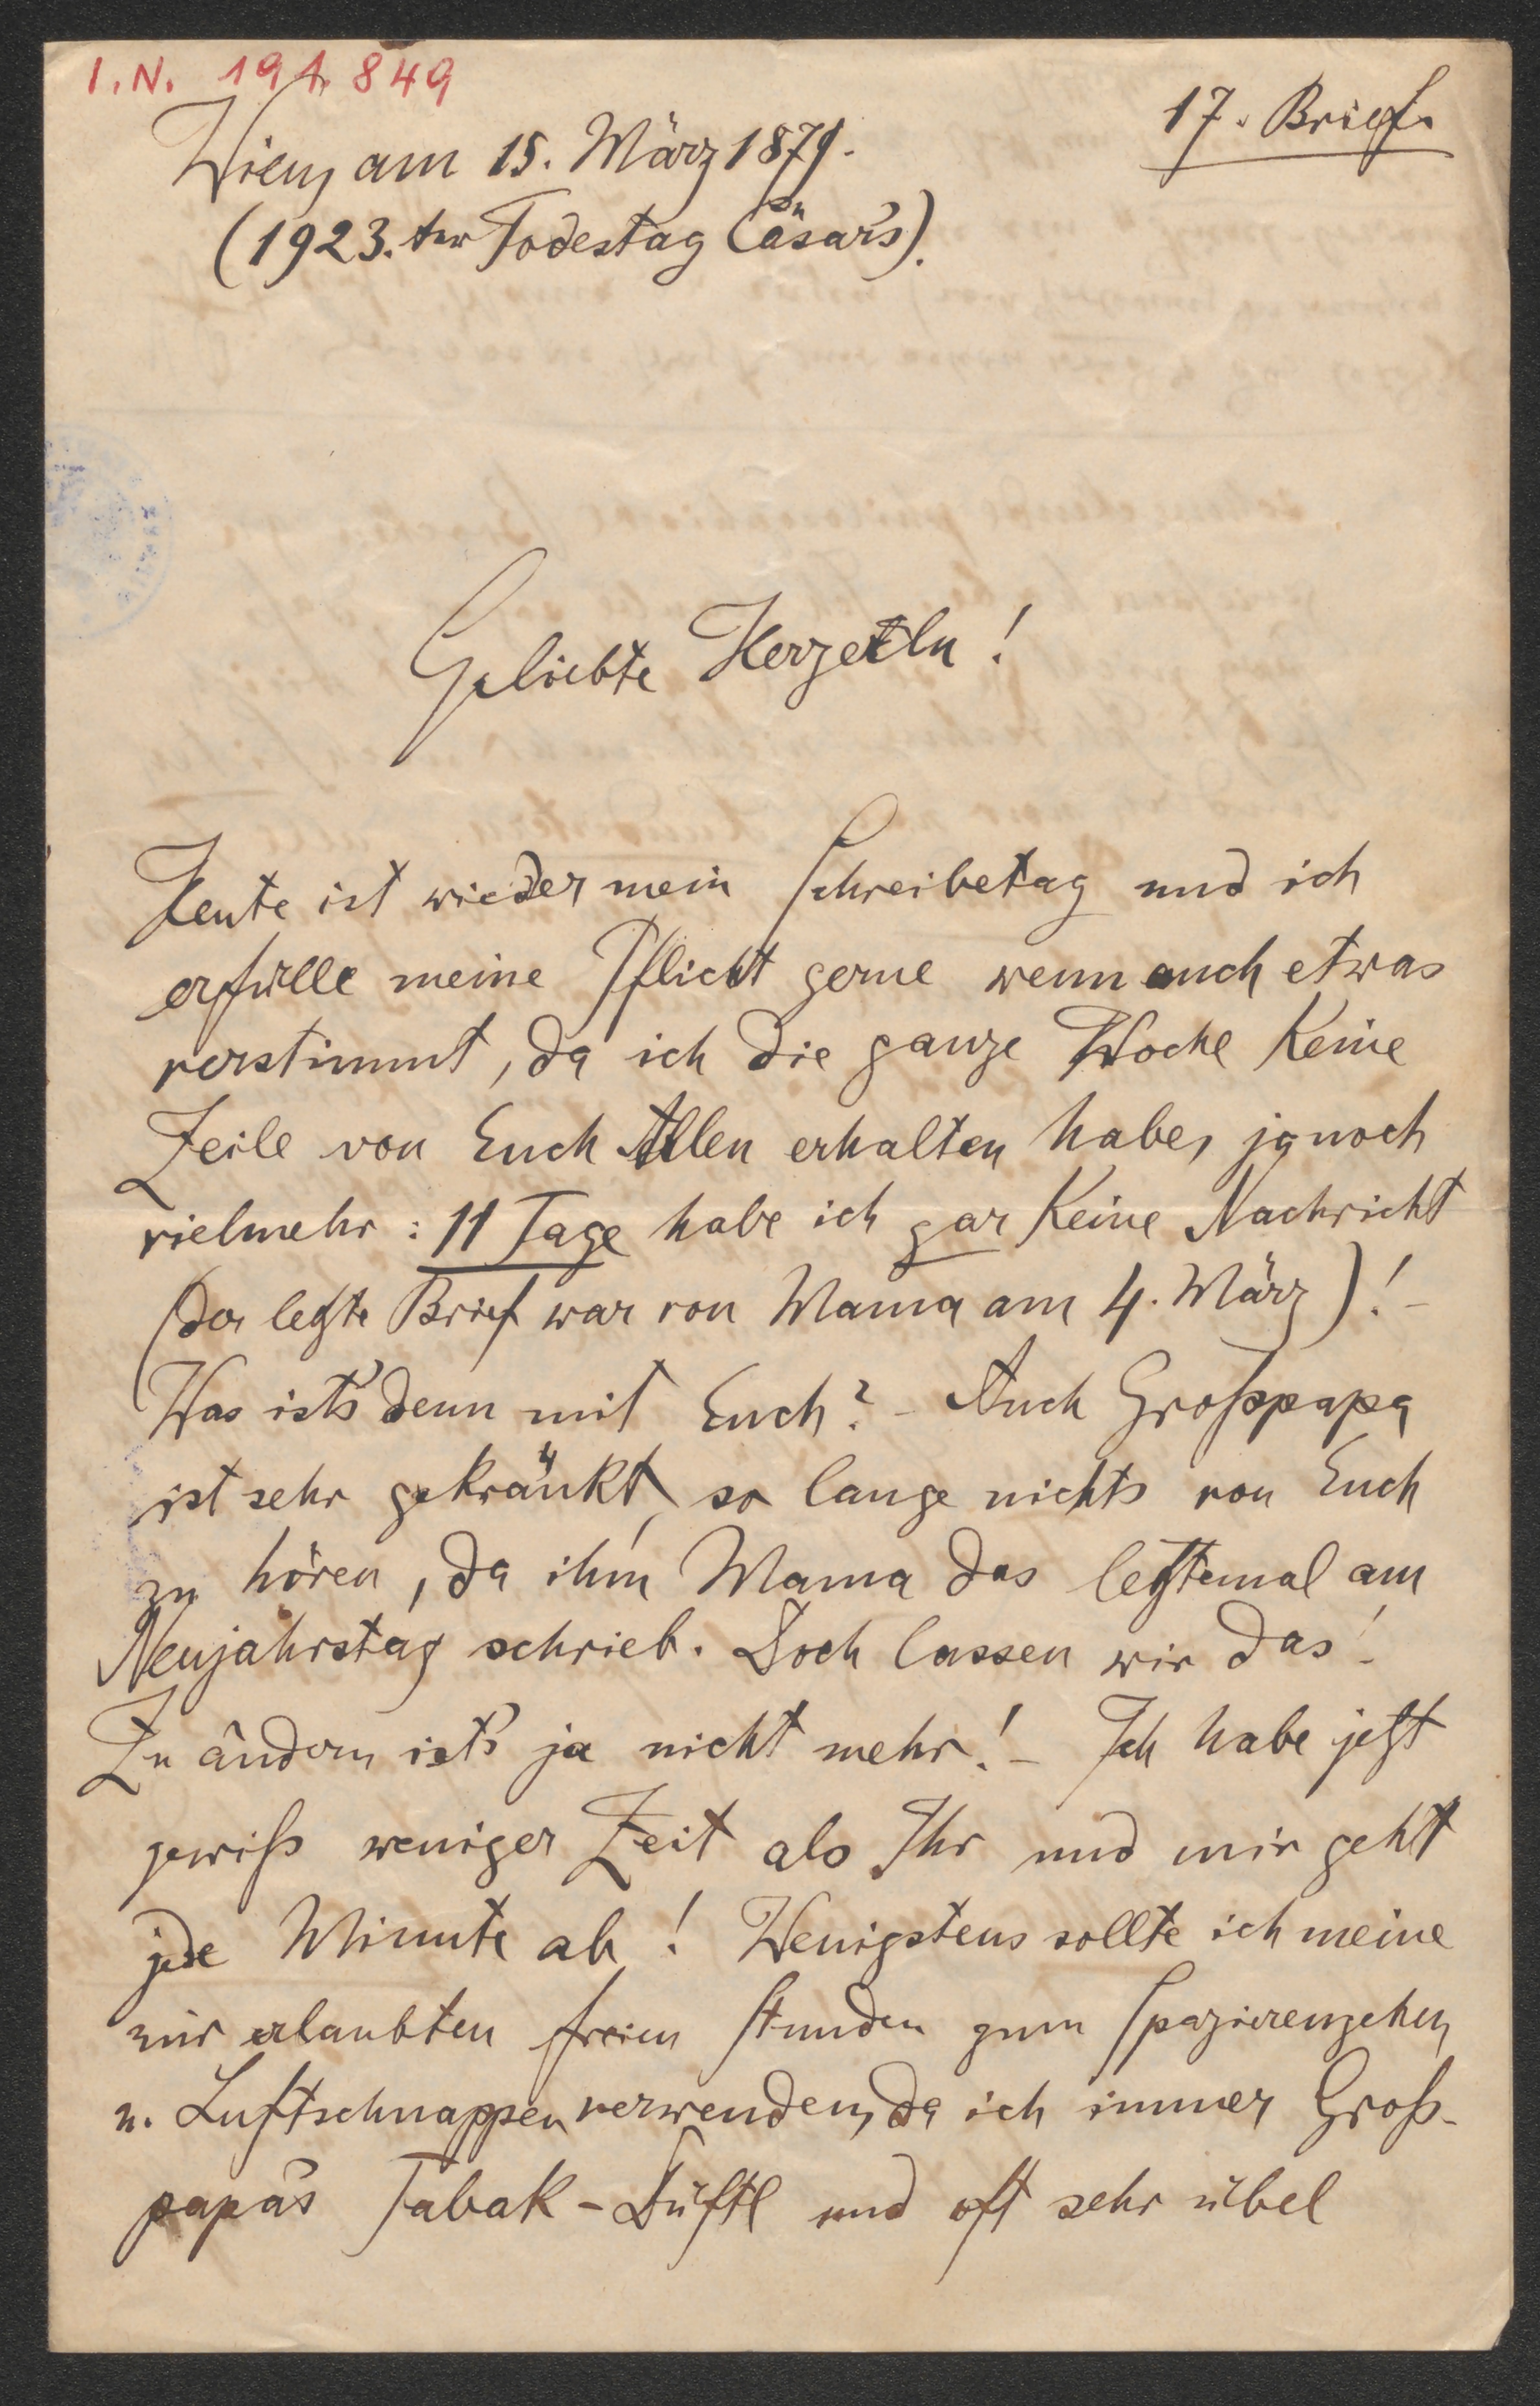 I.N. 191.849
17. Brief.
Wien, am 15. März 1879.
(1923.ter Todestag Cäsar's).
Geliebte Herzerln!
Heute ist wieder mein Schreibetag und ich
erfülle meine Pflicht gerne wenn auch etwas
verstimmt, da ich die ganze Woche keine
Zeile von Euch Allen erhalten habe, ja noch
vielmehr: 11 Tage habe ich gar keine Nachricht
(der letzte Brief war von Mama am 4. März)! –
Was ist's denn mit Euch? – Auch Großpapa
ist sehr gekränkt, so lange nichts von Euch
zu hören, da ihm Mama das letztemal am
Neujahrstag schrieb. Doch lassen wir das!
Zu ändern ist's ja nicht mehr! – Ich habe jetzt
gewiß weniger Zeit als Ihr und mir geht
jede Minute ab! Wenigstens sollte ich meine
mir erlaubten freien Stunden zum Spazierengehen
u. Luftschnappen verwenden, da ich immer Groß-
papa's Tabak-Düftl und oft sehr übel